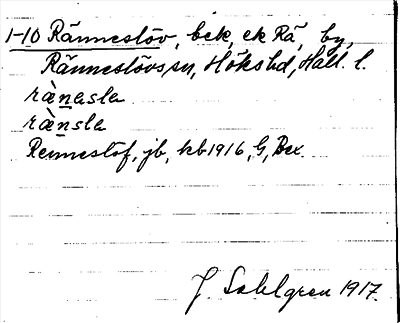 1-10 Rännestöv, bek, ek Rä, by,
Rännestövs sn, Höks hd, Hall. l.
rä̀nasla
rä̀nsla
Rennestof, jb, kb 1916, G, Bex.
J. Sahlgren 1917.